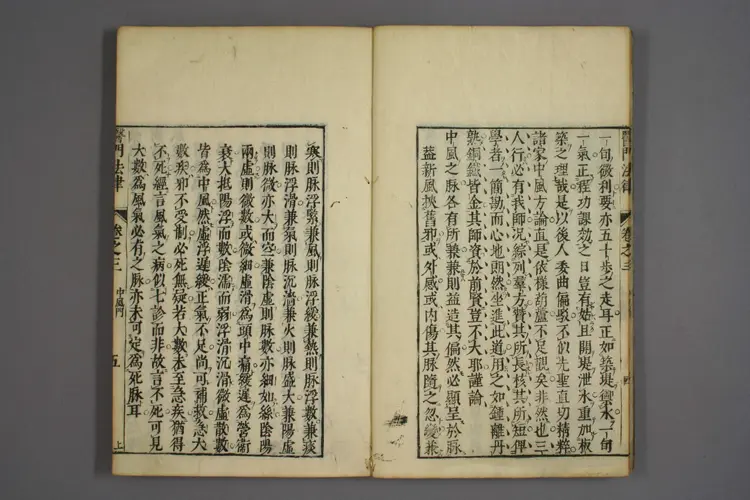 一旬微利要亦五十步之走耳正如築堤禦水一旬
一氣正程功課効之日豈有姑且開堤泄水重加板
築之理哉是以後人委曲偏駁不似先聖直切精粹
諸家中風方論直是依樣葫蘆不足觀矣非然也三
人行必有我師況綜列羣方贊其所長核其所短俾
學者一簡勘而心地朗然坐進此道用之如鍾離丹
熟銅鐵皆金其師資於前賢豈不大耶謹論
中風之脉各有所兼兼則益造其偏然必顯呈於脉
蓋新風挾舊邪或外感或內傷其脉隨之忽變兼
醫門法律
卷之三
寒則脉浮緊兼風則脉浮緩兼熱則脉浮數兼痰
則脉浮滑兼氣則脉沉濇兼火則脉盛大兼陽虛
則脉微亦大而空兼陰虛則脉數亦細如絲陰陽
兩虛則微數或微細虛滑爲頭中痛緩遲爲營衛
衰大抵陽浮而數陰濡而弱浮滑沉滑微虛散數
皆爲中風然虛浮遲緩正氣不足尚可補救急大
數疾邪不受制必死無疑若大數未至急疾猶得
不死經言風氣之病似七診而非故言不死可見
大數爲風氣必有之脉亦未可定爲死脉耳
醫門法律
卷之三
中風門
五
上